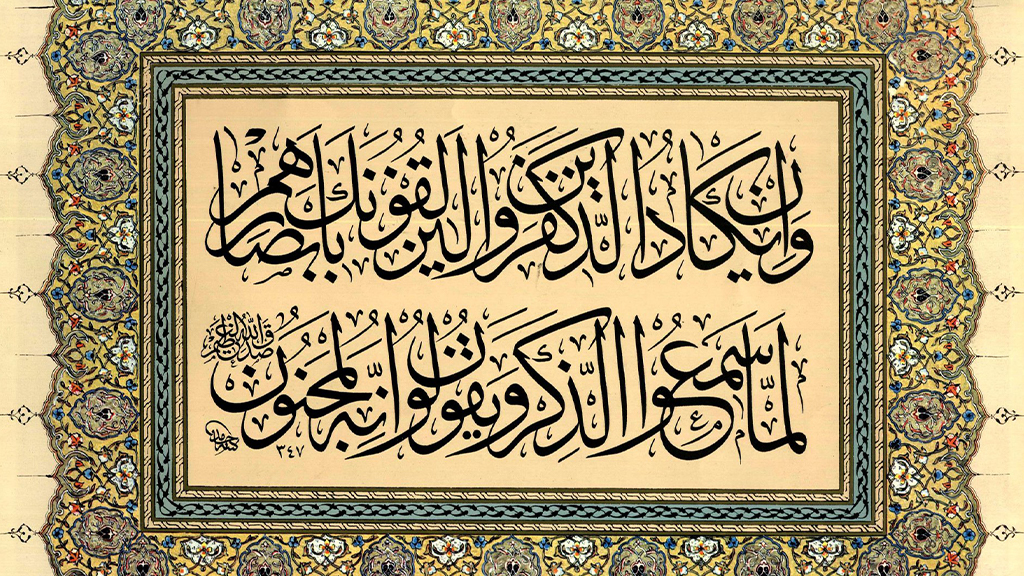 وان يكاد الذين كفروا ليزلقونك بابصارهم
لما سمعوا الذكر ويقولون انه لمجنون
صدق الله العظيم
٣٤٧